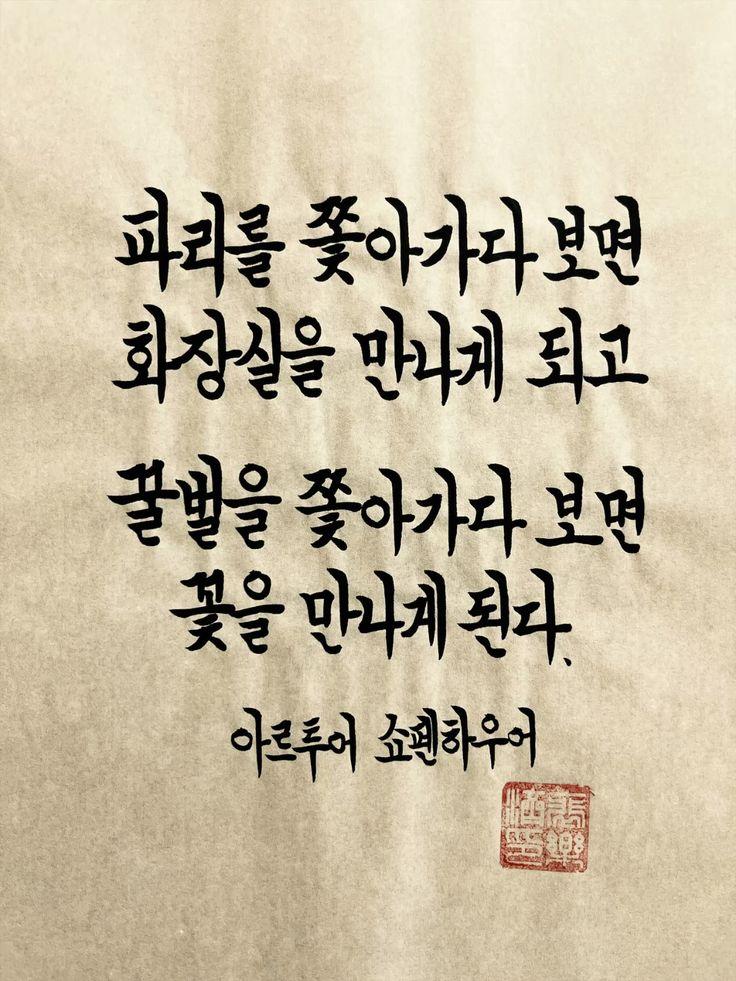 파리를 쫓아가다 보면
화장실을 만나게 되고
꿀벌을 쫓아가다 보면
꽃을 만나게 된다.
아르투어 쇼펜하우어